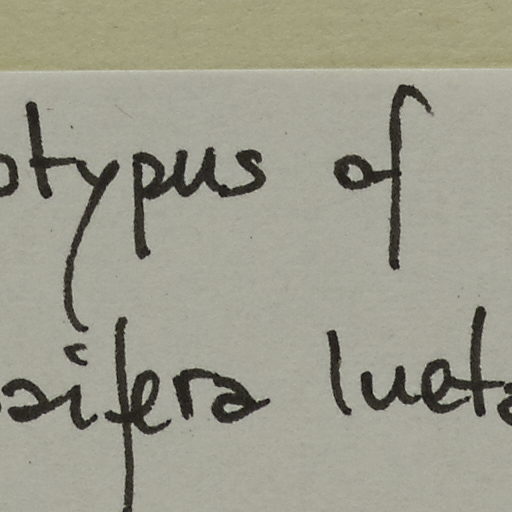 otypus of
aifera lueta